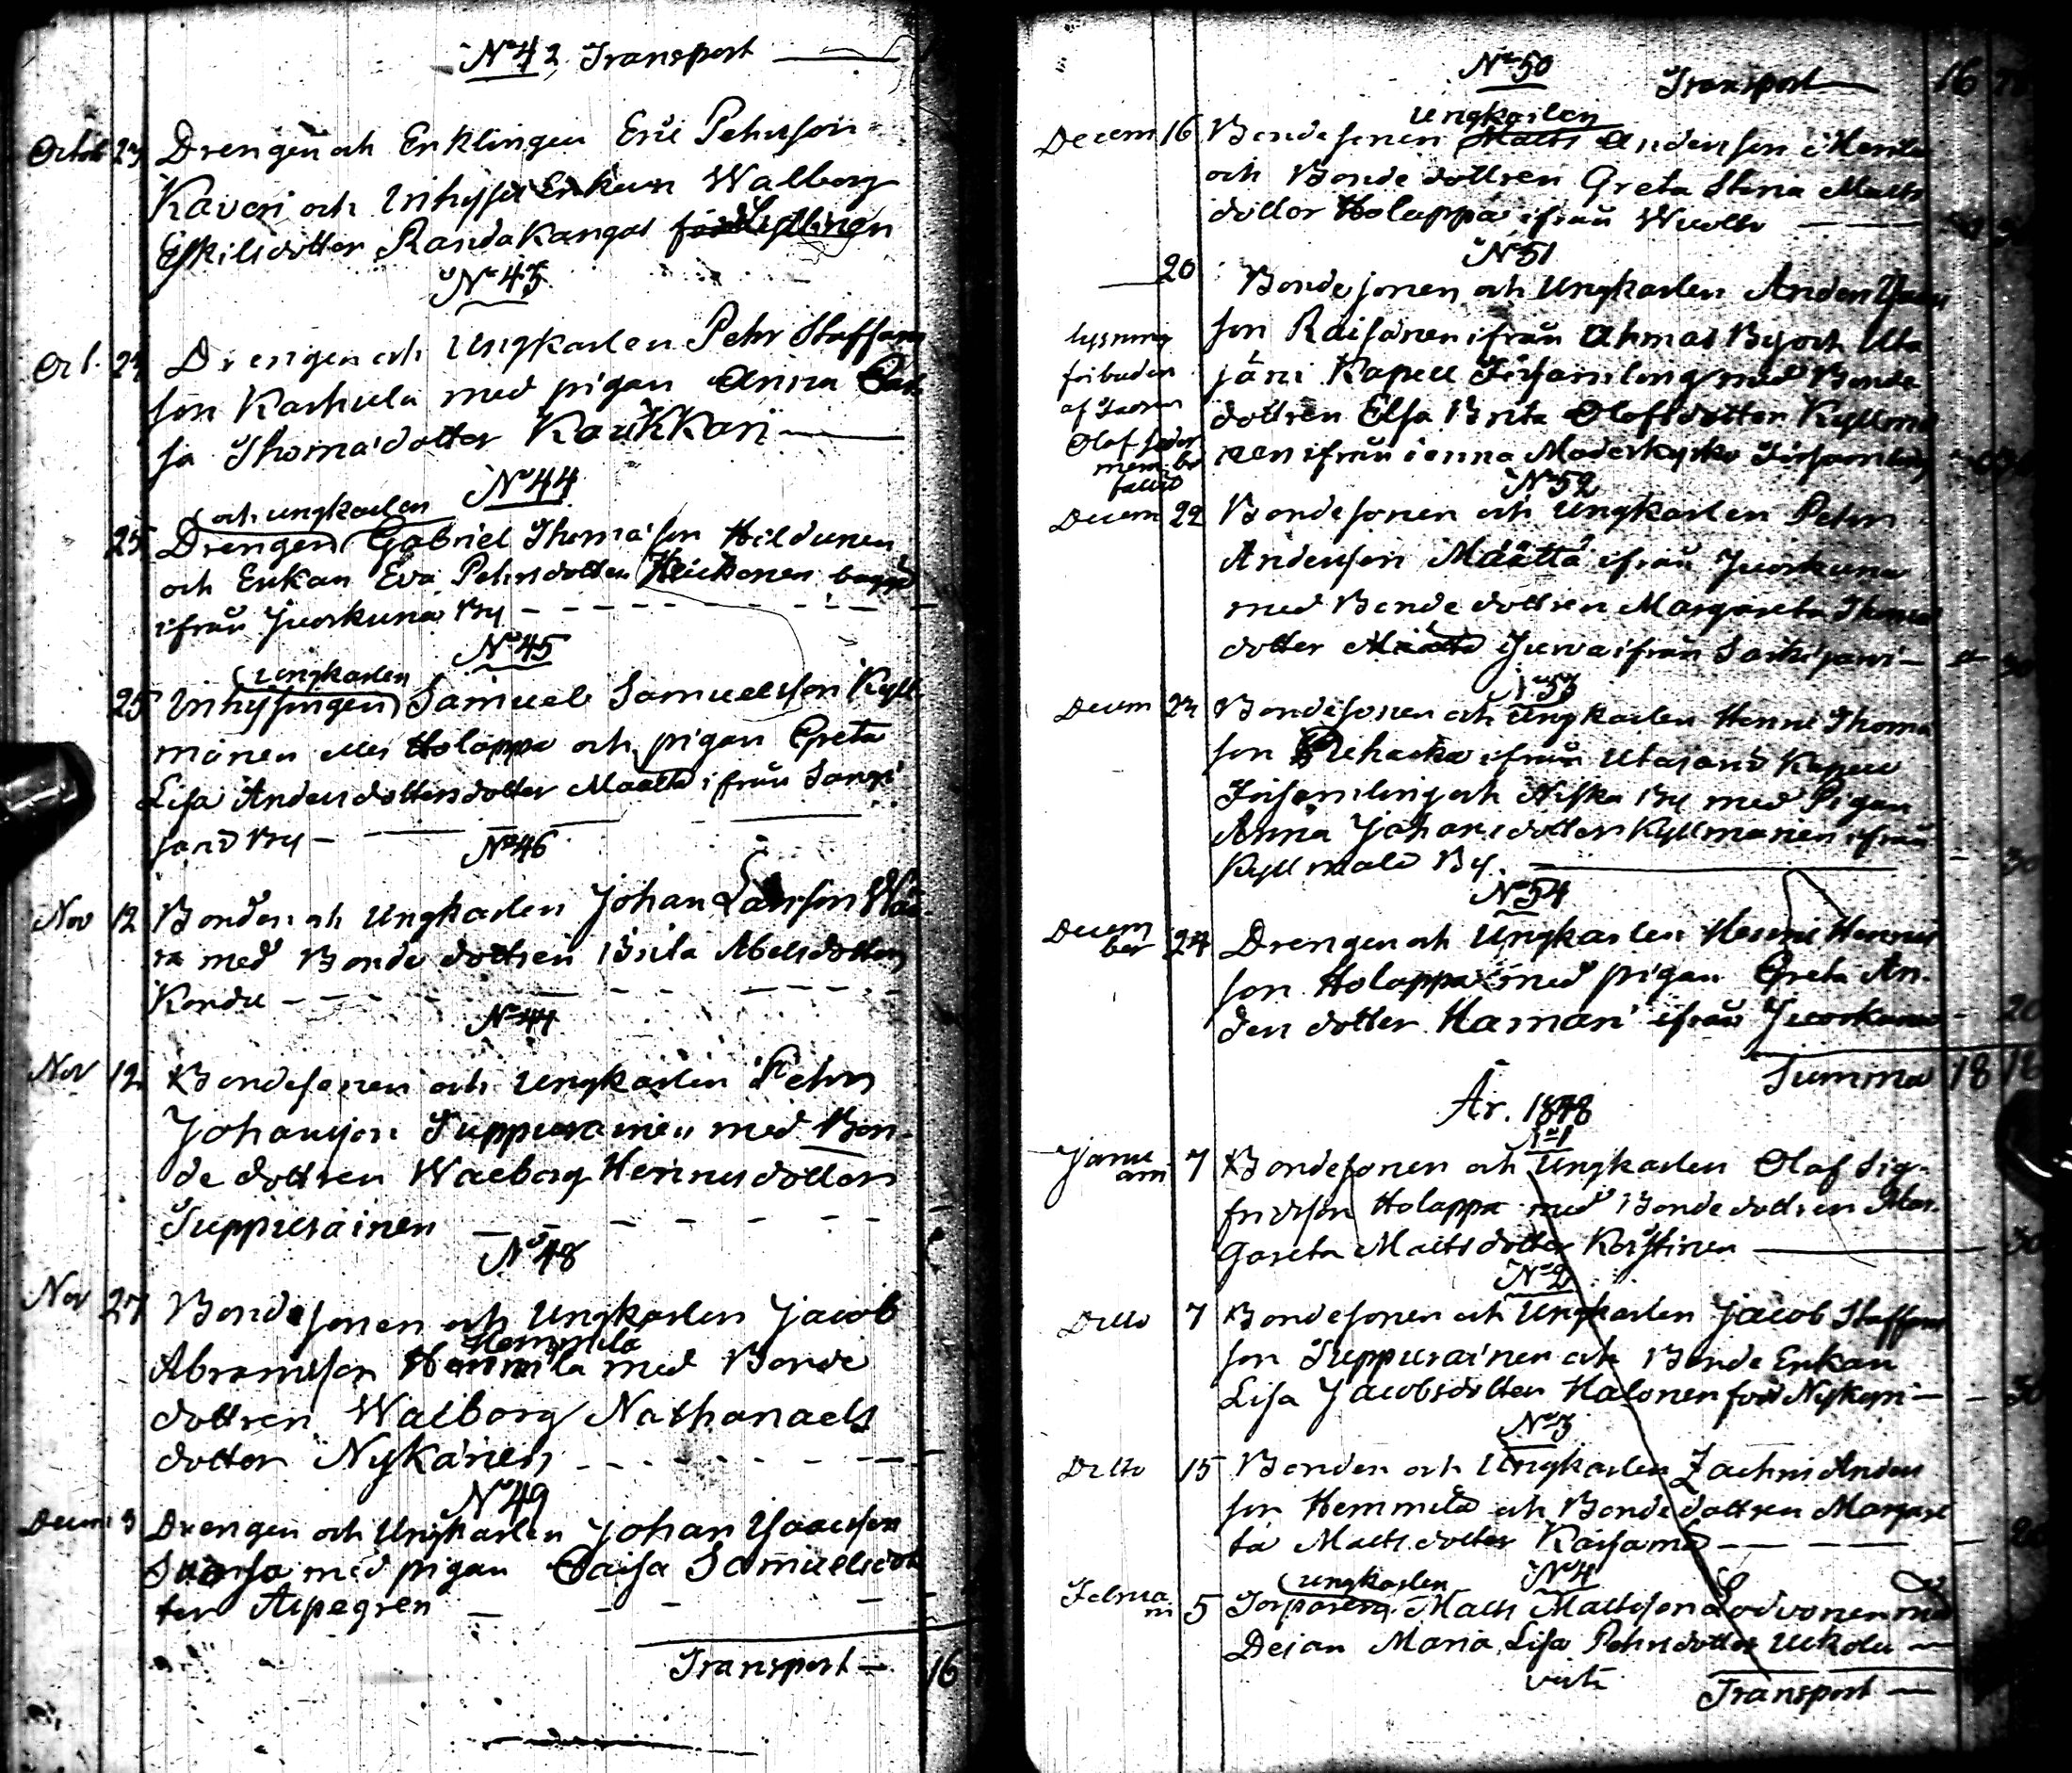 No 42 Transport
Octob 23 Drengen och Enklingen Eric Pehrsson
Kaven och Inhyses Enkan Walborg
Eskilsdotter Randakangas
No 43
Oct. 24 Drengen och Ungkarlen Pehr Staffans
son Karhula med pigan Anna Cai
sa Thomadotter Kaukkari
No 44
och ungkarlen
25 Drengen Gabriel Thomasson Hildunen
och Enkan Eva Pehrsdotter Heickonen bägge
ifrån Juorkuna By
No 45
Ungkarlen
25 Inhysingen Samuel Samuelsson Kyll
mänen eller Holappa och pigan Greta
Lisa Andersdottersdotter Määttä ifrån Sangi
No 46
Nov 12 Bonden och Ungkarlen Johan Larsson
ra med Bonde dottren Brita Abelsdotter
Kondu
No 47
Nov 12 Bondesonen och Ungkarlen Pehr
Johansson Tuppurainen med Bon
de dottren Walborg Henricsdotter
Tuppurainen
No 48
Nov 27 Bondesonen och Ungkarlen Jacob
Hemmilä
Abramsson Hemmilä med Bonde
dottren Walborg Nathanaels
dotter Nykänen
No 49
Decem 3 Drengen och Ungkarlen Johan Isacsson
med pigan Caisa Samuelsdot
ter Alpegren
Transport 16
No 50
Transport 16
Ungkarlen
Decem 16 Bondesonen Matts Andersson i
och Bonde dottren Greta Stina Matts
dotter Holappa ifrån Wuolle
No 51
20 Bondesonen och Ungkarlen Anders
son Raisanen ifrån Ahmas By och Uta
lysning
järvi Kapell Församling med Bonde
förbuden
dottren Elsa Brita Olofsdotter Kyllmä
Olof
nen ifrån denna Moderkyrko Församling
No 52
Decem 22 Bondesonen och Ungkarlen Pehr
Andersson Määttä ifrån Juorkuna
med Bonde dottren Margareta Thomas
dotter Määttä Juwa ifrån Särkijärvi 30
No 53
Decem Bondesonen och Ungkarlen Henric Thoma
son ifrån Utajärvi Kapell
Församling och Niska By med Pigan
Anna Johansdotter Kyllmänen ifrån
Kyllmälä By. 30
No 54
Decem
ber 24 Drengen och Ungkarlen Henric Henrics
son Holappa med pigan Greta An
ders dotter Hamari ifrån Juorkuna 20
Summa 18 18
År. 1848
No 1
Janu
arii 7 Bondesonen och Ungkarlen Olof Sig
fridsson Holappa med Bonde dottren Mar
gareta Mattsdotter Karstinen 30
No 2
Ditto 7 Bondesonen och Ungkarlen Jacob Staffans
son Tuppurainen och Bonde Enkan
Lisa Jacobsdotter Halonen född Nykyri 30
No 3
Ditto 15 Bonden och Ungkarlen Zachris Anders
son Hemmilä och Bonde dottren Margare
ta Matts dotter Kaisama 20
No 4
Ungkarlen
Februa
rii 5 Torparen Matts Mattsson Lodvonen med
Dejan Maria Lisa Pehrsdotter Uckola
vert
Transport